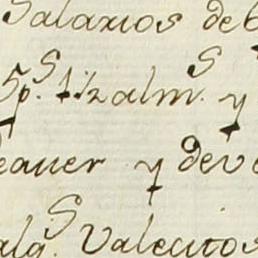 Salarios de
5p.s 1½ alm.s y
eauer y deve
alg.s Valecitos